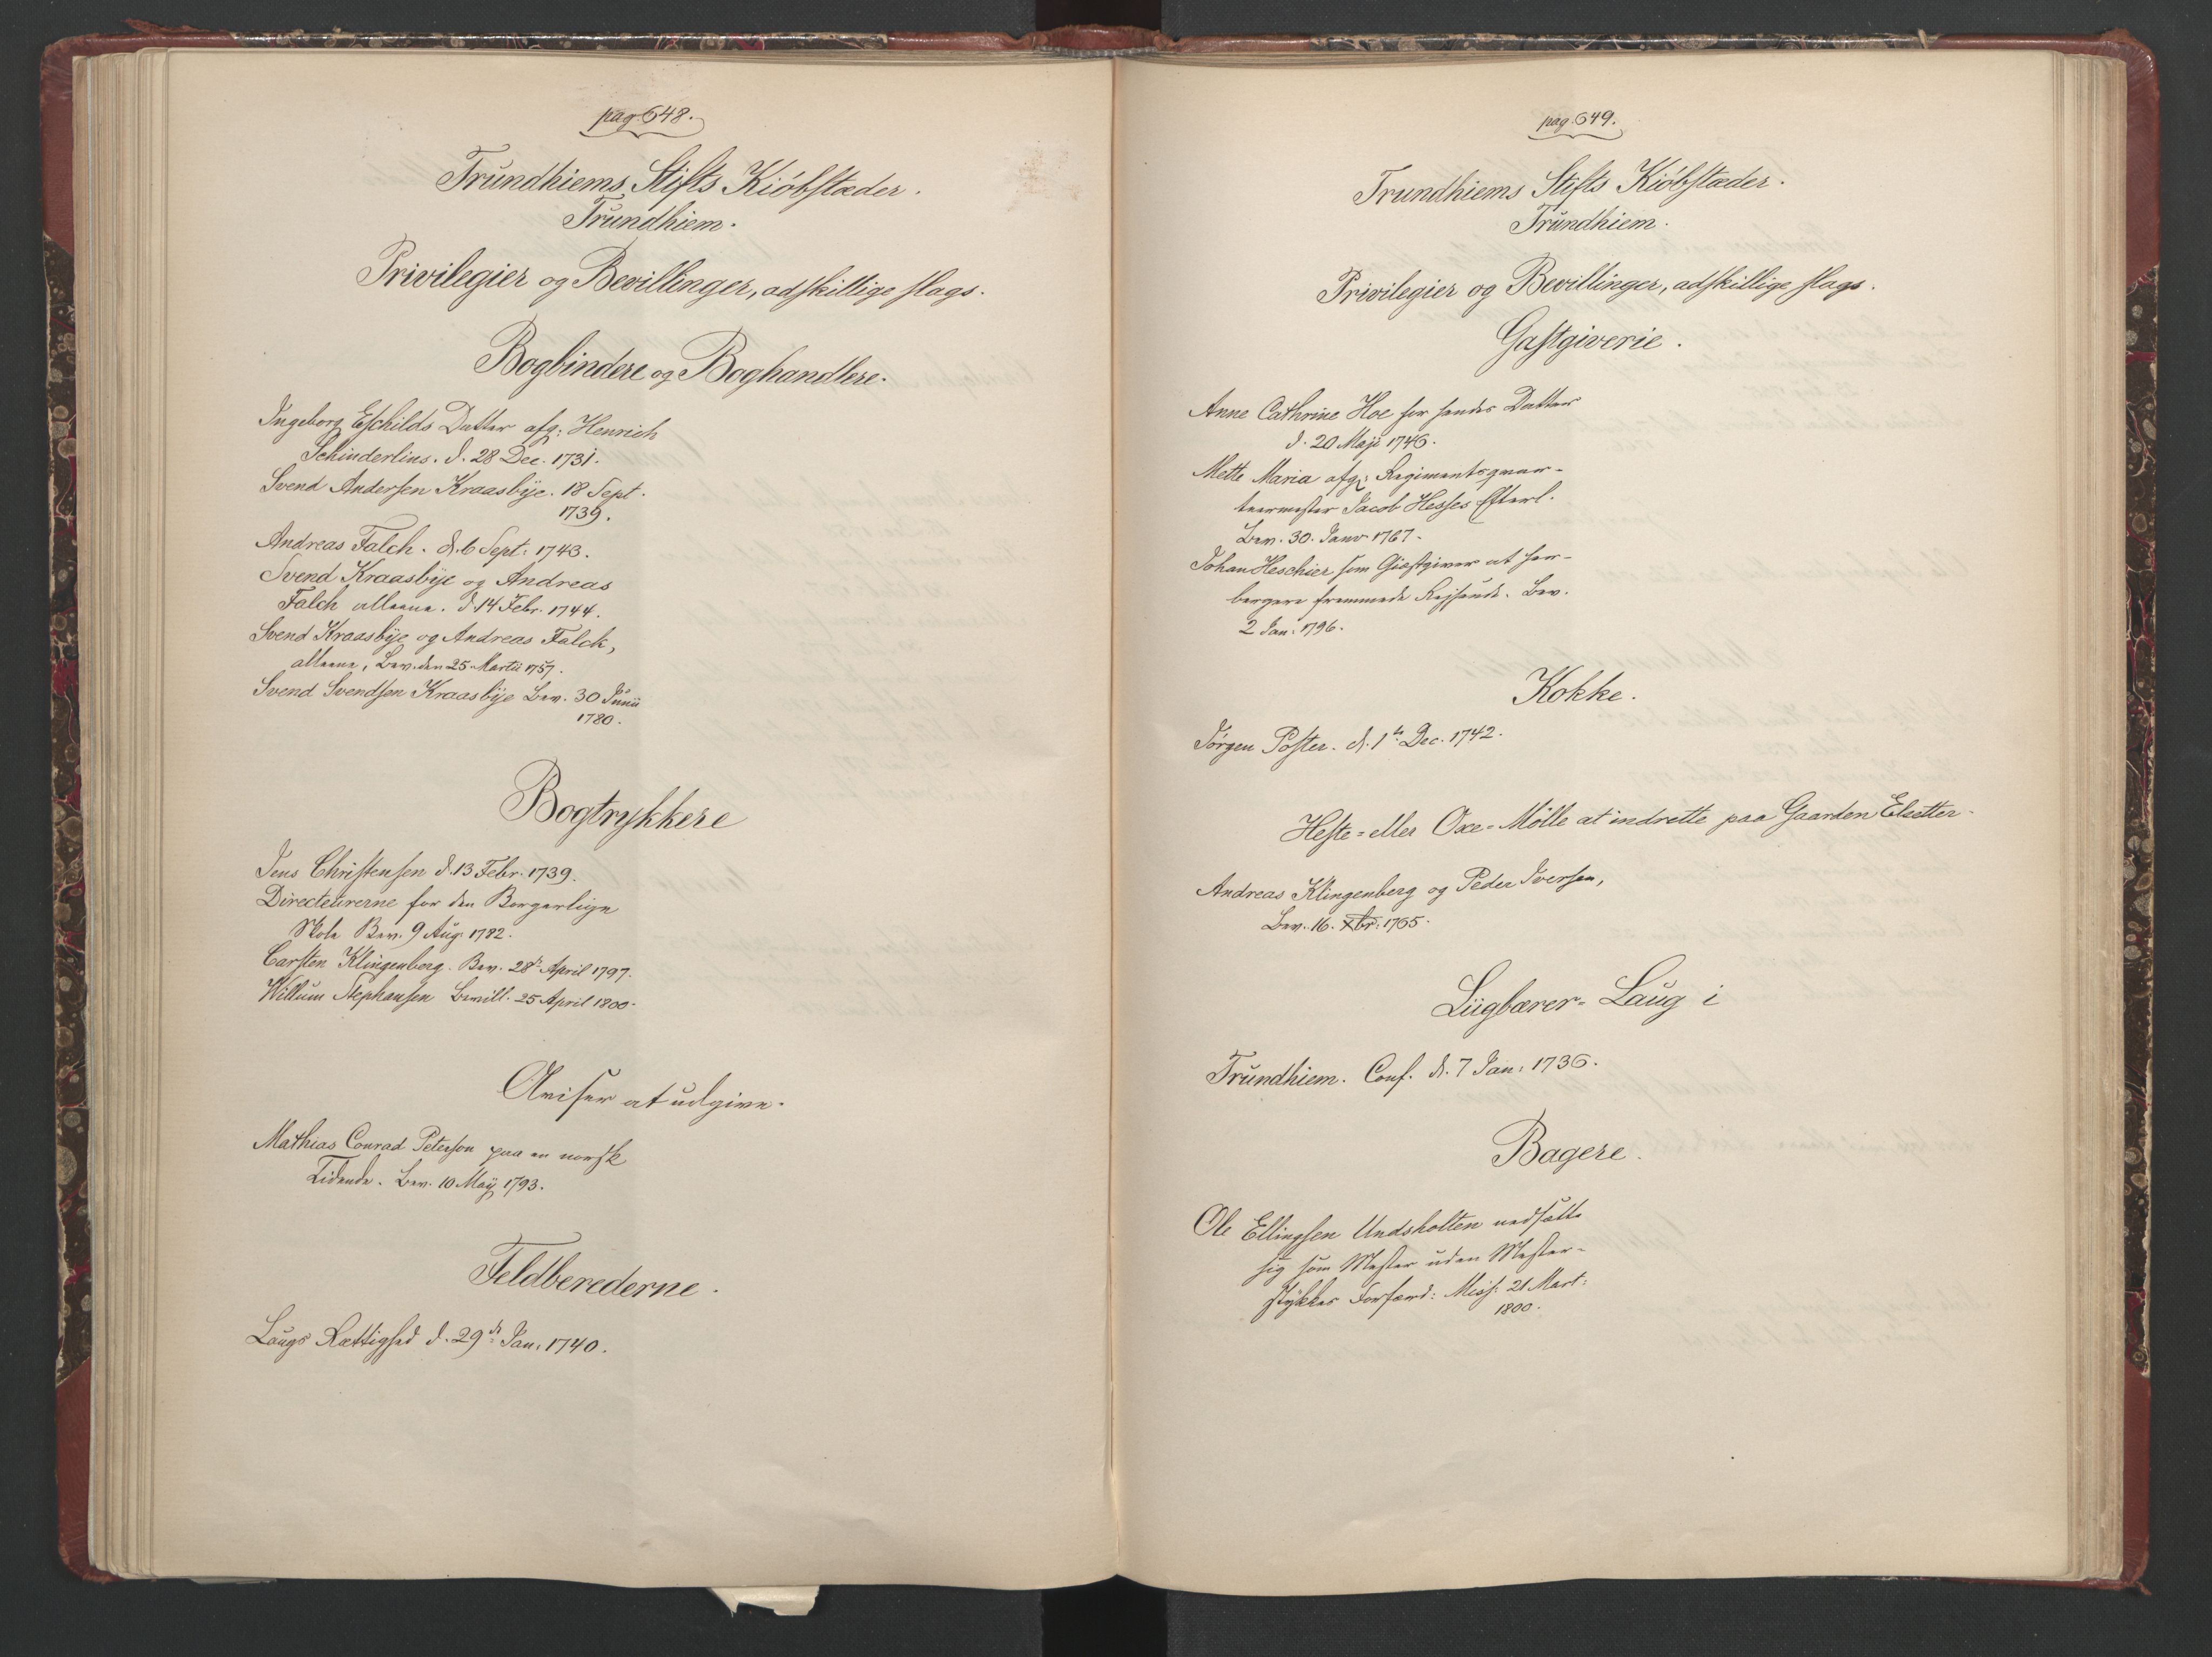 pag. 648.
Trundhiems Stifts Kióbstæder.
Trundhiem.
Privilegier og Bevillinger, adskillige slags.
Bogbindere og Boghandlere.
Ingeborg Eschilds Datter afg: Henrich
Schinderlins. d. 28 Dec. 1731.
Svend Andersen Kraasbÿe. 18 Sept.
1739.
Andreas Falch. d. 6 Sept: 1743.
Svend Kraasbÿe og Andreas
Falch alleene. d. 14 Febr. 1744.
Svend Kraasbÿe og Andreas Falck,
alleene, Bev. den 25. Martii 1757.
Svend Svendsen Kraasbÿe Bev. 30 Junii
1780.
Bogtrykkere
Jens Christensen d. 13 Febr. 1739.
Directeurerne for den Borgerlige
Skole Bev. 9 Aug. 1782.
Carsten Klingenberg. Bev. 28de April 1797.
Willum Stephansen Bevill. 25 April 1800.
Aviser at udgive.
Mathias Conrad Peterson paa en norsk
Tidende. Bev. 10 Maÿ 1793.
Feldberederne.
Laugs Rættighed d. 29de Jan: 1740.
pag. 649.
Trundhiems Stifts Kióbstæder.
Trundhiem.
Privilegier og Bevillinger, adskillige slags.
Gastgiverie.
Anne Cathrine Hoe for hendes Datter
d. 20 Maji 1746.
Mette Maria afg: Regimentsqvar-
teermester Jacob Hesses Efterl.
Bev. 30. Janv 1767.
Johan Heschier som Giæstgiver at her-
bergere fremmede Rejsende. Bev.
2 Jan: 1796.
Kokke.
Jørgen Poster. d. 1te Dec. 1742.
Heste= eller Oxe=Mölle at indrette paa Gaarden Elsetter.
Andreas Klingenberg og Peder Iversen,
Bev. 16. Xbr: 1765.
Liigbærer=Laug i
Trundhiem. Conf. d. 7 Jan: 1736.
Bagere.
Ole Ellingsen Undsholten nedsætte
sig som Mester uden Mester-
stykkes Forfærd: Miss: 21 Mart:
1800.